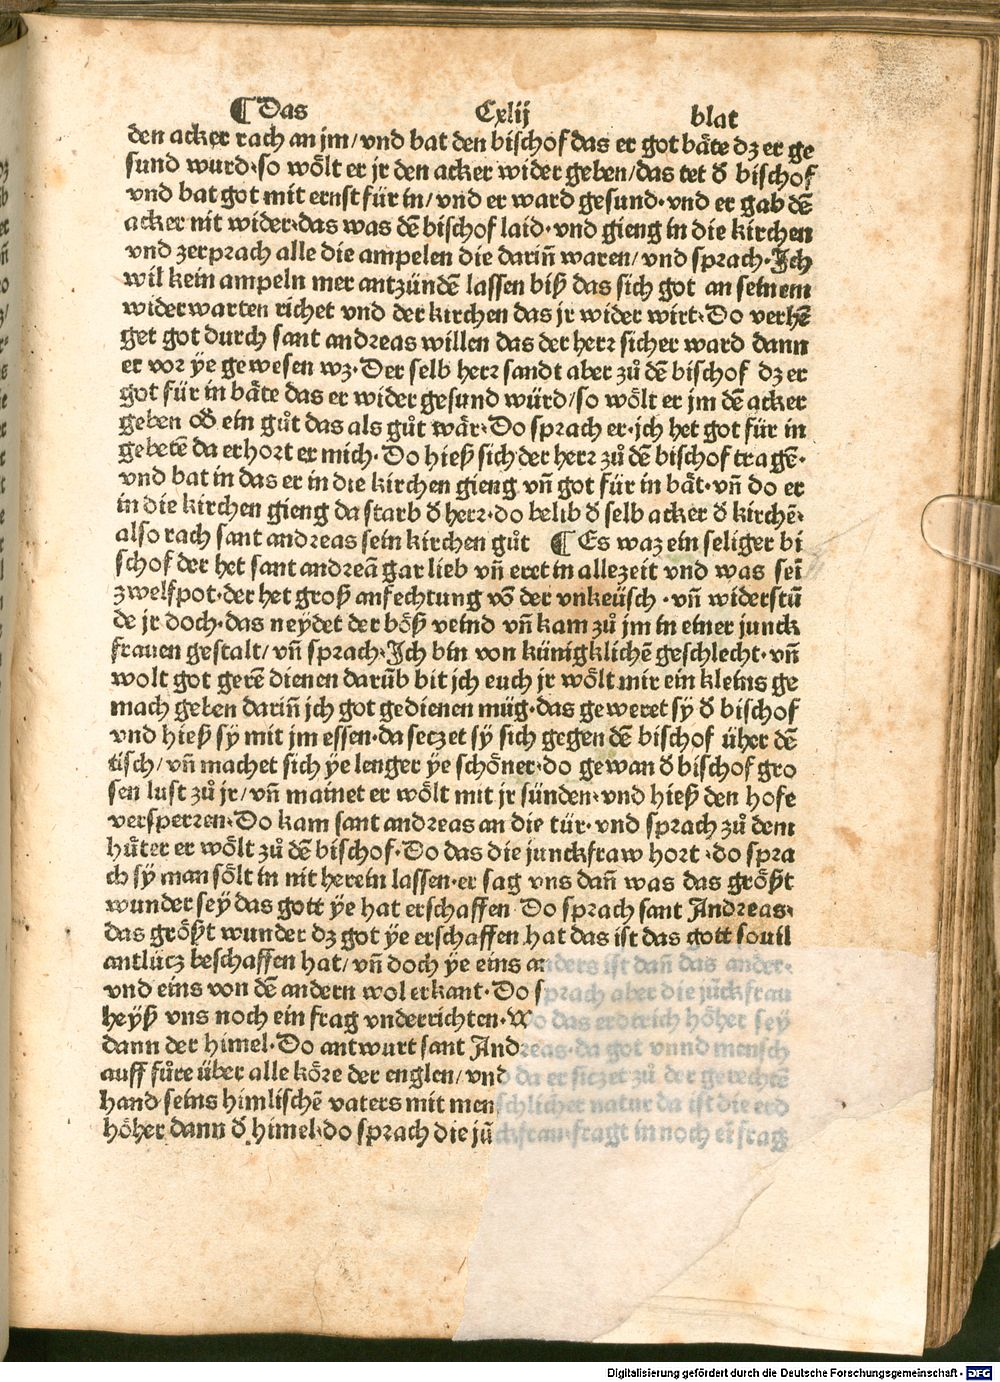 ¶ Das Cxlij blat
den acker rach an jm/ vnd bat den bischof das er got bäte dz er ge
sund wurd·so wölt er jr den acker wider geben/das tet ð bischof
vnd bat got mit ernst für in/ vnd er ward gesund·vnd er gab dẽ
acker nit wider·das was dẽ bischof laid·vnd gieng in die kirchen
vnd zerprach alle die ampelen die dariñ waren/ vnd sprach·Ich
wil kein ampeln mer antzündẽ lassen biß das sich got an seinem
widerwarten richet vnd der kirchen das jr wider wirt·Do verhẽ
get got durch sant andreas willen das der herr sicher ward dann
er vor ÿe gewesen wz·Der selb herr sandt aber zů dẽ bischof dz er
got für in bäte das er wider gesund würd/so wölt er jm dẽ acker
geben oð ein gůt das als gůt wär·Do sprach er·jch het got für in
gebetẽ da erhort er mich·Do hieß sich der herr zů dẽ bischof tragẽ·
vnd bat in das er in die kirchen gieng vñ got für in bät·vñ do er
in die kirchen gieng da starb ð herr·do belib ð selb acker ð kirchẽ·
also rach sant andreas sein kirchen gůt ¶ Es waz ein seliger bi
schof der het sant andreã gar lieb vñ eret in allezeit vnd was sei̅
zwelfpot·der het groß anfechtung võ der vnkeüsch·vñ widerstũ
de jr doch·das neydet der böß veind vñ kam zů jm in einer junck
frauen gestalt/ vñ sprach·Ich bin von künigklichẽ geschlecht·vñ
wolt got gerẽ dienen darũb bit jch euch jr wölt mir ein kleins ge
mach geben dariñ jch got gedienen müg·das geweret sÿ ð bischof
vnd hieß sÿ mit jm essen·da seczet sÿ sich gegen dẽ bischof über dẽ
tisch/ vñ machet sich ÿe lenger ÿe schöner·do gewan ð bischof gro
sen lust zů jr/ vñ mainet er wölt mit jr sünden·vnd hieß den hofe
versperren·Do kam sant andreas an die tür·vnd sprach zů dem
hůter er wölt zů dẽ bischof·Do das die junckfraw hort·do spra
ch sÿ man sölt in nit herein lassen·er sag vns dañ was das größt
wunder seÿ das gott ÿe hat erschaffen Do sprach sant Andreas·
das größt wunder dz got ÿe erschaffen hat das ist das gott souil
antlücz beschaffen hat/ vñ doch ÿe eins anders ist dañ das ander·
vnd eins von dẽ andern wol erkant·Do sprach aber die jũckfrau
heÿß vns noch ein frag vnderrichten·Wo das erdtrich höher seÿ
dann der himel·Do antwurt sant Andreas·da got vnnd mensch
auff fůre über alle köre der englen/ vnd da er siczet zů der gerechtẽ
hand seins himlischẽ vaters mit menschlicher natur da ist die erd
höher dann ð himel·do sprach die jũckfrau·fragt in noch ei̅ frag
Digitalisierung gefördert durch die Deutsche Forschungsgemeinschaft - DFG